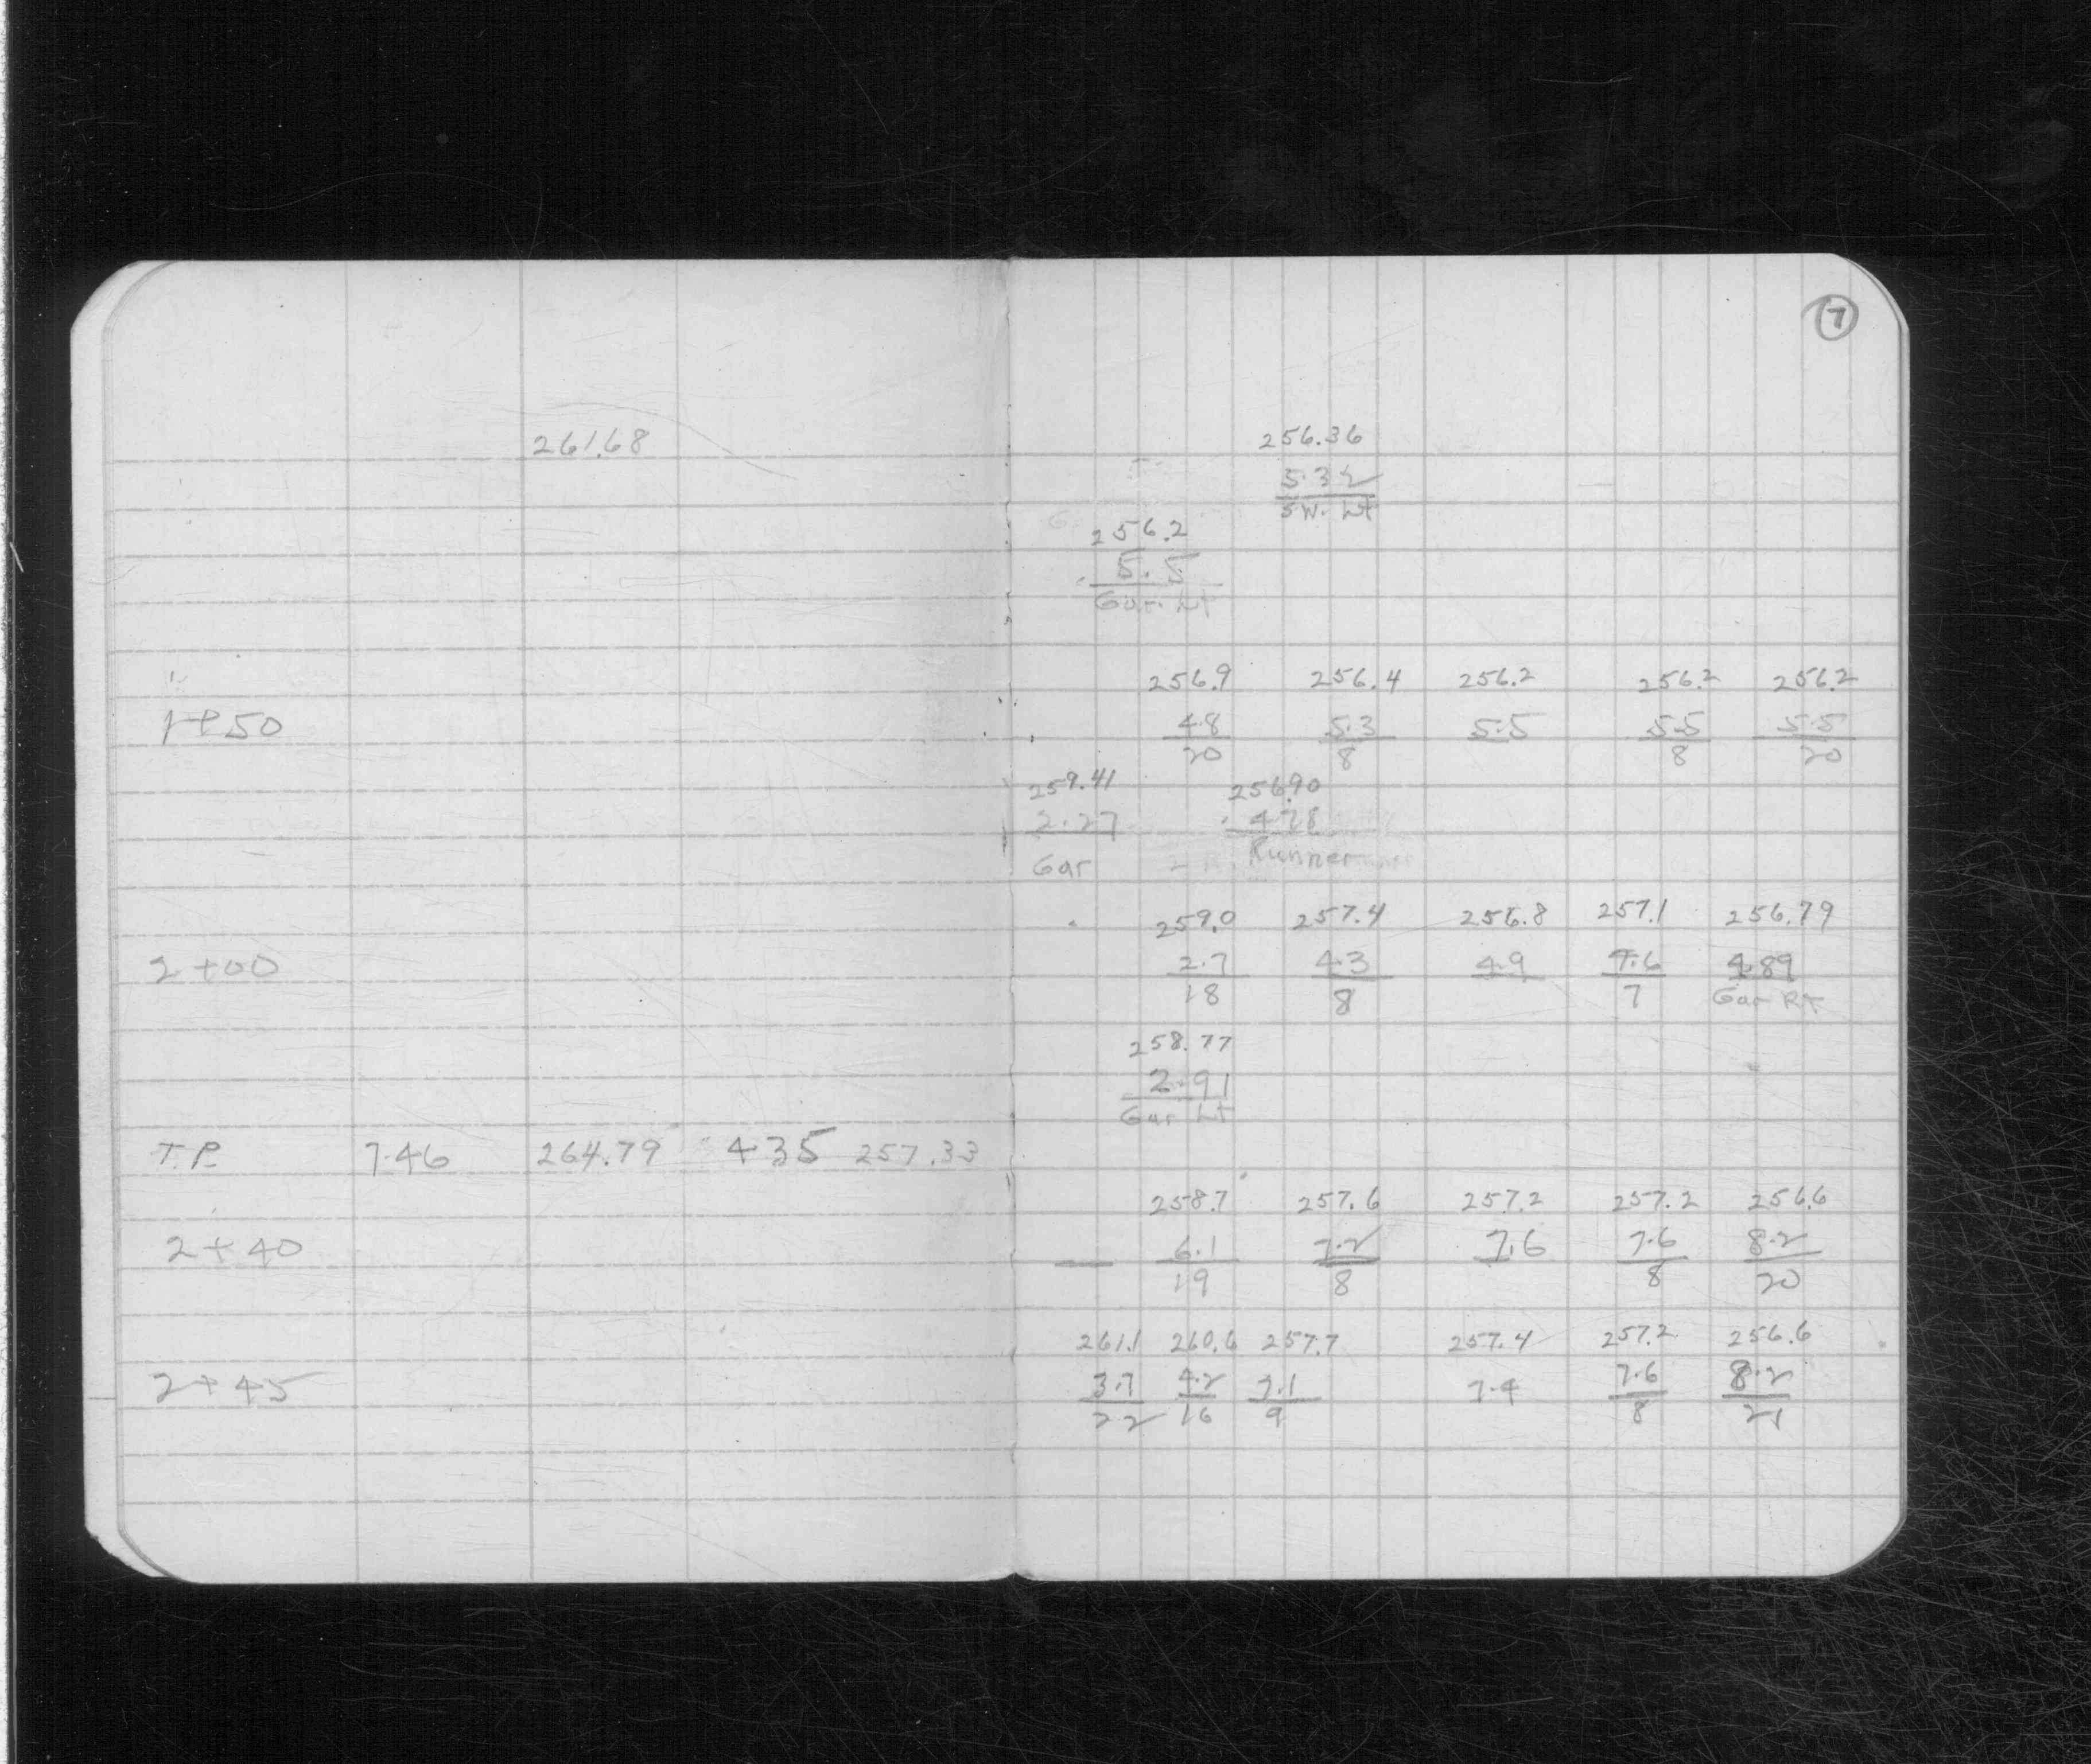 7
261.68 256.36
5.32
SW. Lt
256.2
5.5
Gar. Lt
256.9 256.4 256.2 256.2 256.2
1+50 4.8 5.3 5.5 5.5 5.5
20 8 8 20
259.41 256.90
2.27 4.78
Gar Runner
259.0 257.4 256.8 257.1 256.79
2+00 2.7 4.3 4.9 4.6 4.89
18 8 7 Gar Rt
258.77
2.91
Gar Lt
T.P. 7.46 264.79 4.35 257.33
258.7 257.6 257.2 257.2 256.6
2+40 6.1 7.2 7.6 7.6 8.2
19 8 8 20
261.1 260.6 257.7 257.4 257.2 256.6
2+45 3.7 4.2 7.1 7.4 7.6 8.2
22 16 9 8 21